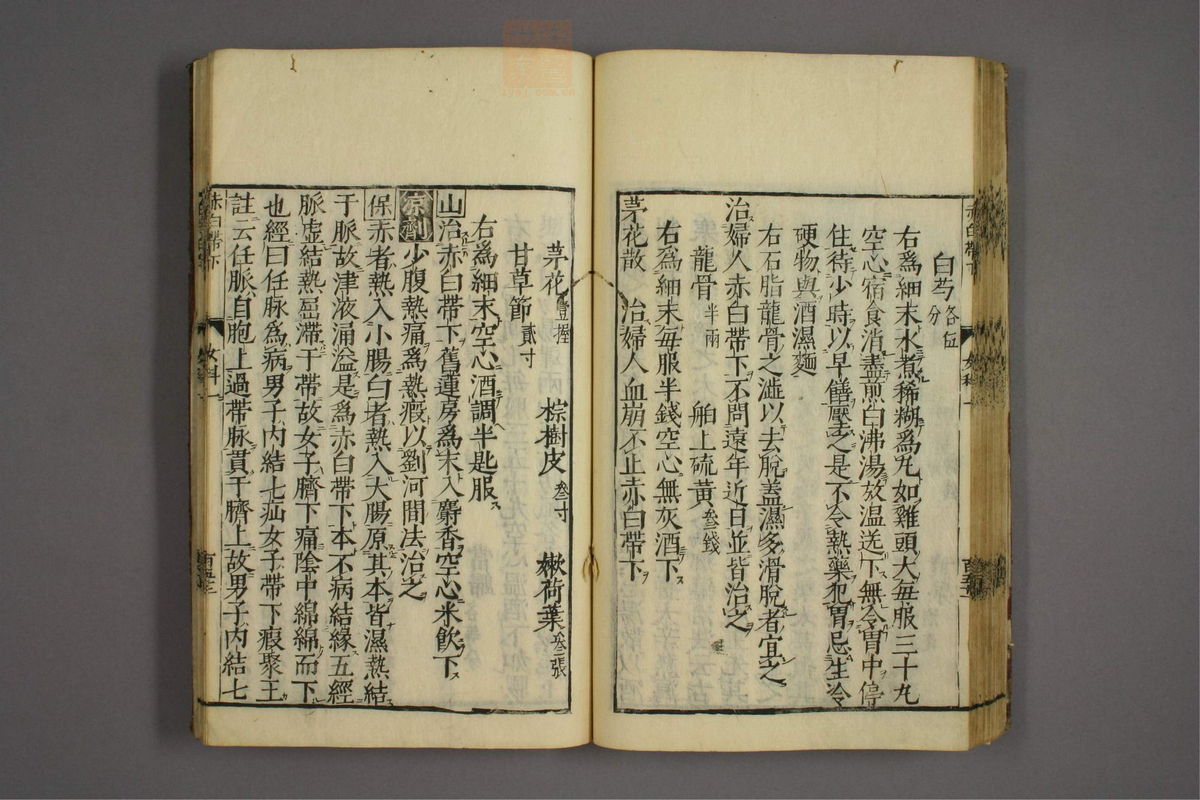 白芍各伍分
右爲細末水煮稀糊爲丸如雞頭大每服三十丸
空心宿食消盡煎白沸湯放温送下無令胃中停
住待少時以早饍壓之是不令熱藥犯胃忌生冷
硬物與酒濕麵
右石脂龍骨之澁以去脫盖濕多滑脫者宜之
治婦人赤白帶下不問遠年近日並皆治之
龍骨半兩 舶上硫黃叄錢
右爲細末每服半錢空心無灰酒下
茅花散 治婦人血崩不止赤白帶下
赤白帶下 女科
茅花壹握 棕樹皮叄寸 嫰荷葉叄張
甘草節貳寸
右爲細末空心酒調半匙服
山治赤白帶下舊蓮房爲末入麝香空心米飲下
涼劑少腹熱痛爲熱癥以劉河間法治之
保赤者熱入小腸白者熱入大腸原其本皆濕熱結
于脈故津液涌溢是爲赤白帶下本不病結緣五經
脈虛結熱屈滯于帶故女子臍下痛陰中綿綿而下
也經曰任脈爲病男子内結七疝女子帶下瘕聚王
註云任脈自胞上過帶脈貫于臍上故男子内結七
赤白帶下 女科